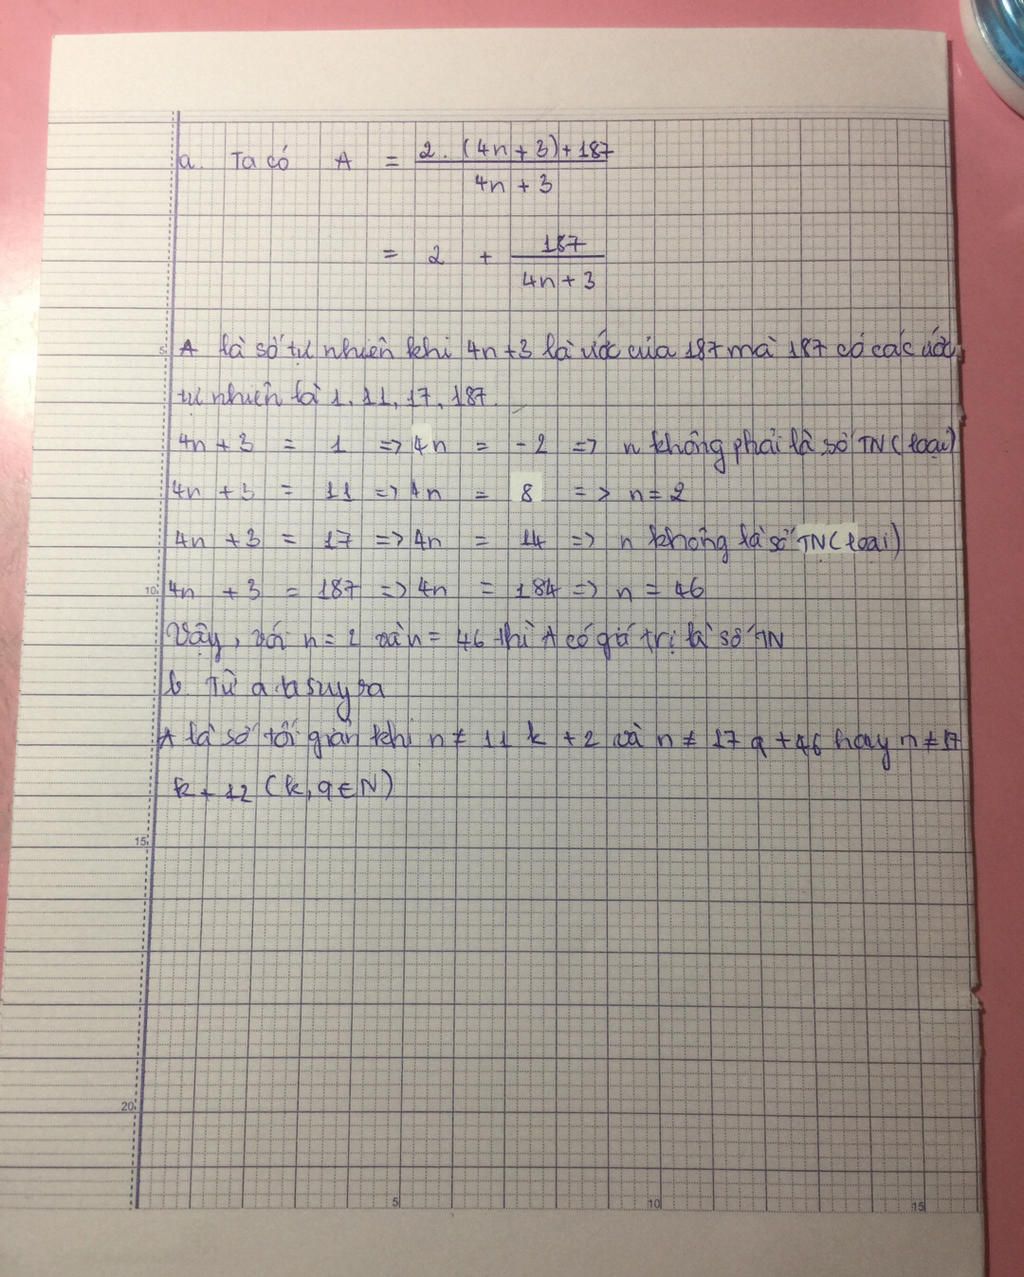 a. Ta có A = 2.(4n+3)+187
4n+3
= 2 + 187
4n+3
5 A là số tự nhiên khi 4n+3 là ước của 187 mà 187 có các ước
tự nhiên là 1, 11, 17, 187.
4n+3 = 1 => 4n = -2 => n không phải là số TN (loại)
4n+3 = 11 => 4n = 8 => n=2
4n+3 = 17 => 4n = 14 => n không là số TN (loại)
10 4n+3 = 187 => 4n = 184 => n = 46
Vậy, với n=2 và n=46 thì A có giá trị là số TN
b. Từ a ta suy ra
A là số tối giản khi n ≠ 11 k +2 và n ≠ 17 q +46 hay n ≠ 17
k + 12 (k, q ∈ N)
15
20
5 10 15